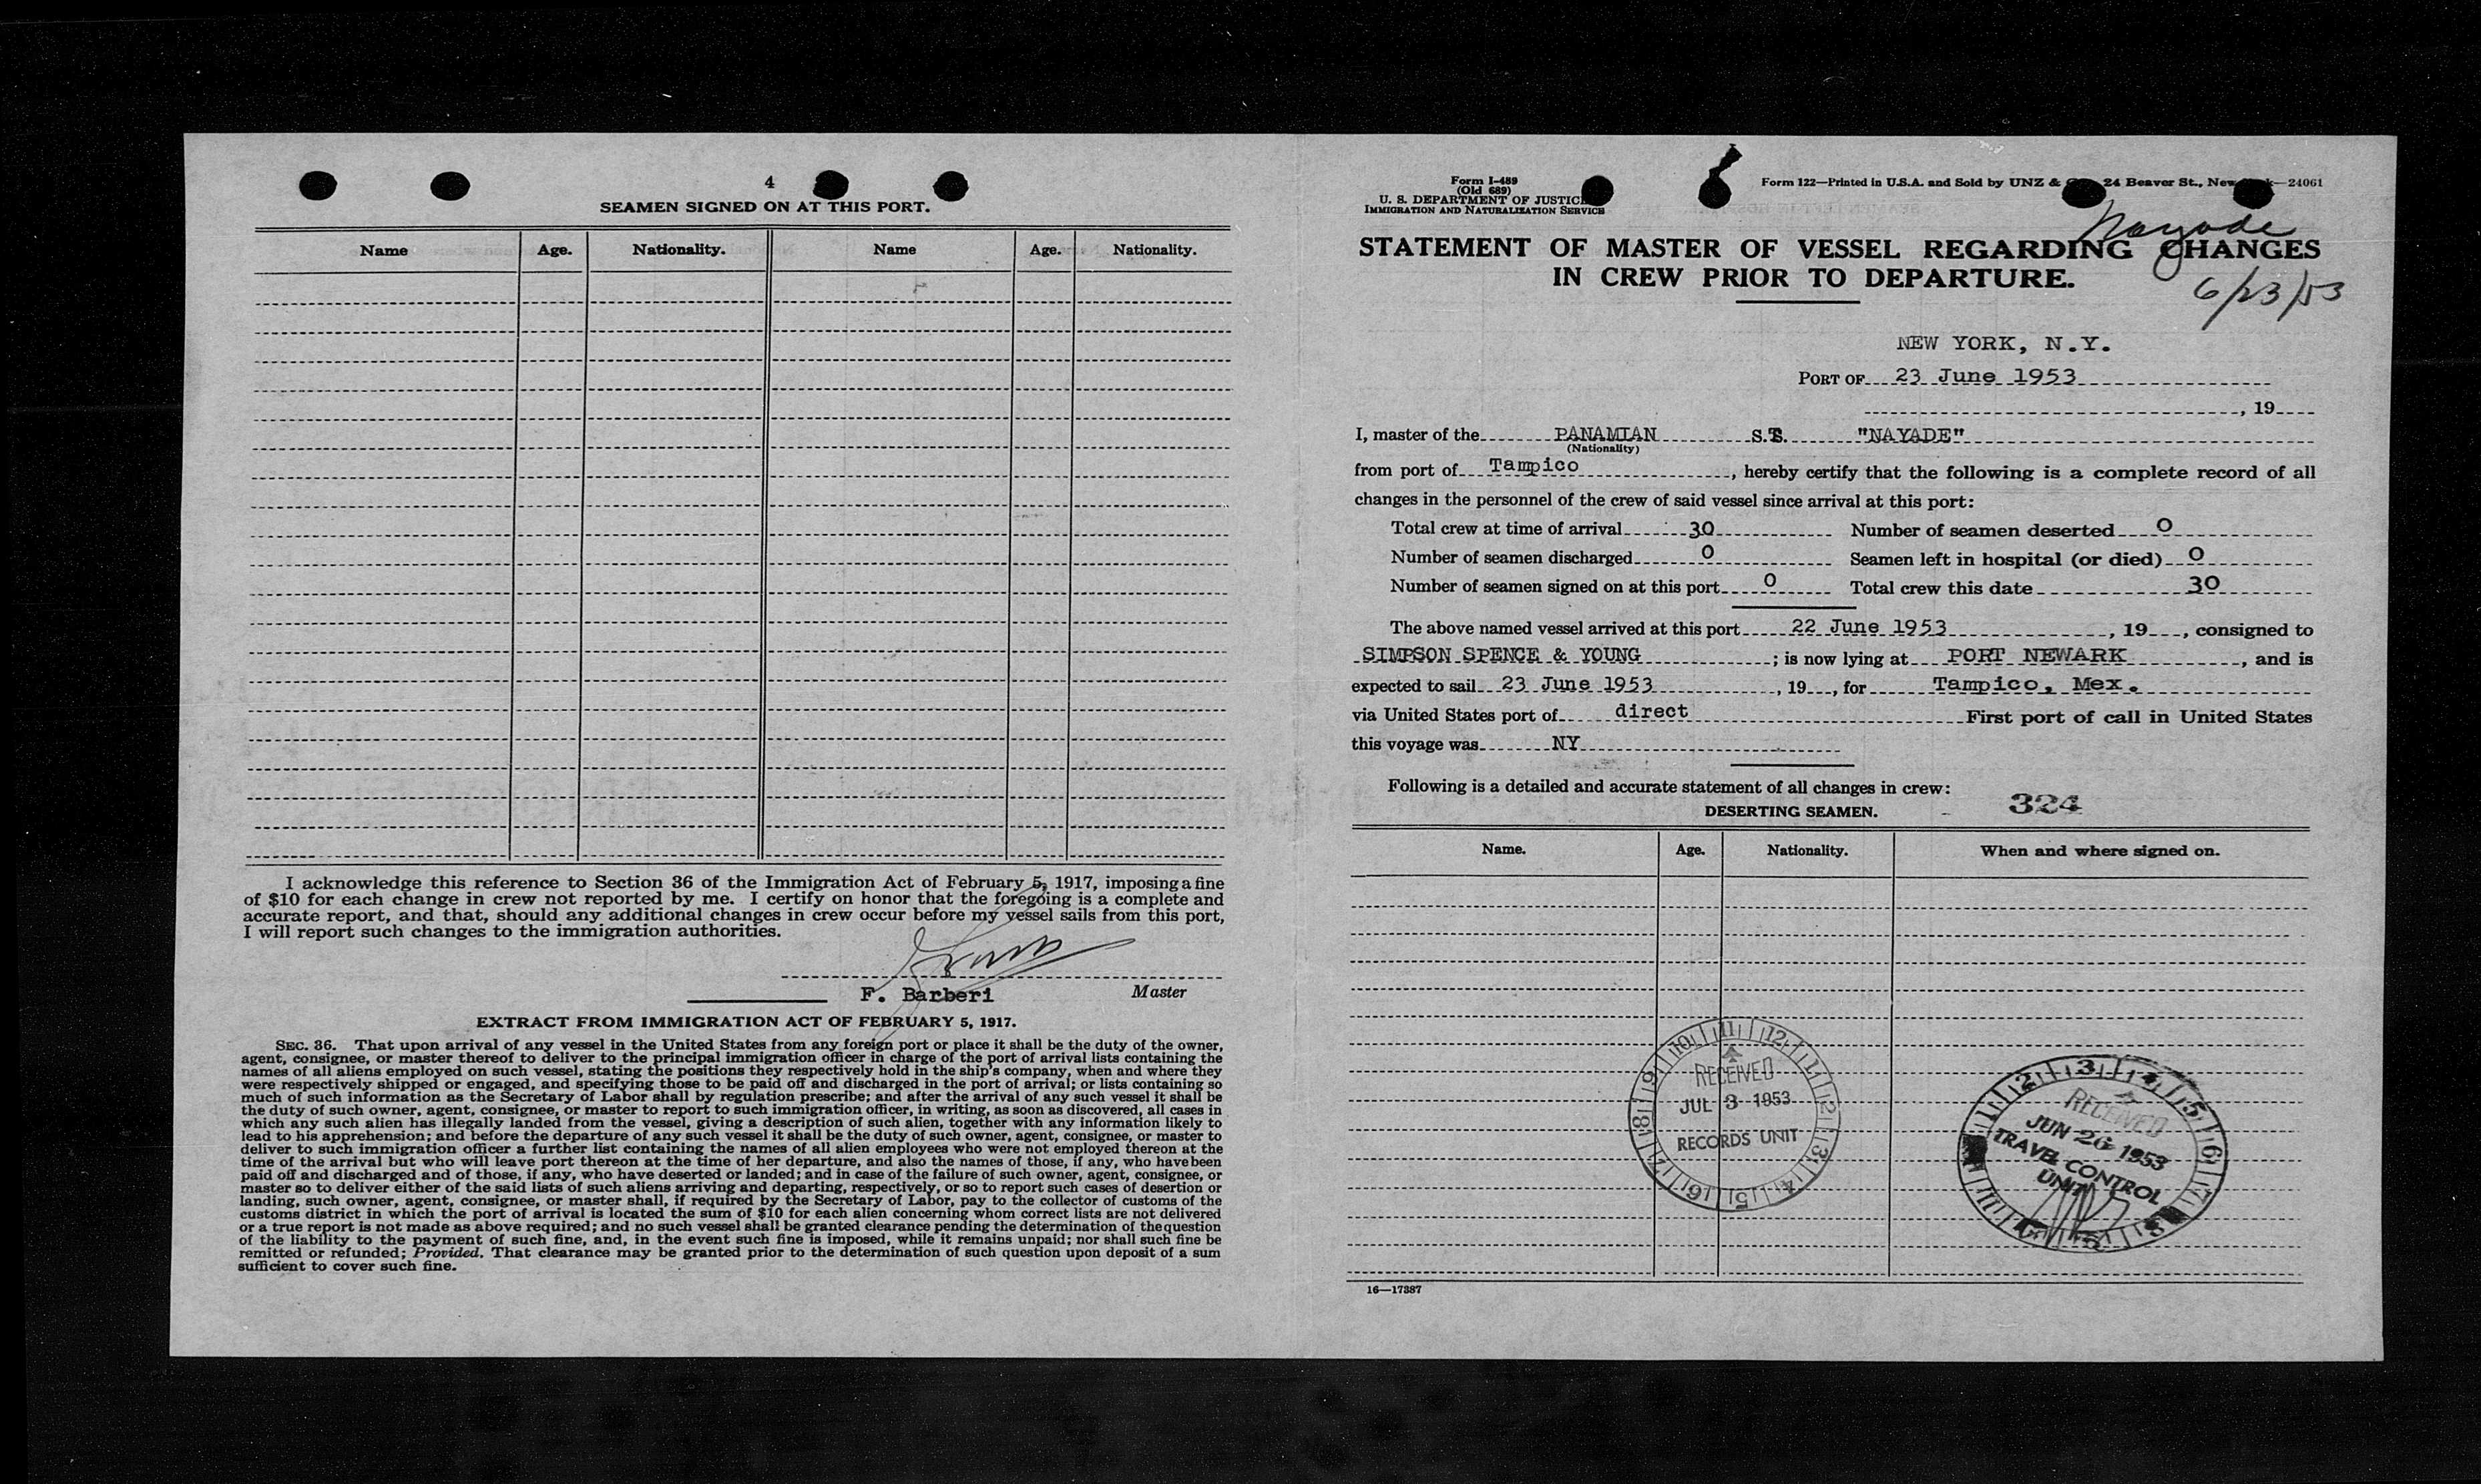 4
SEAMEN SIGNED ON AT THIS PORT.
Name Age. Nationality. Name Age. Nationality.
I acknowledge this reference to Section 36 of the Immigration Act of February 5, 1917, imposing a fine
of $10 for each change in crew not reported by me. I certify on honor that the foregoing is a complete and
accurate report, and that, should any additional changes in crew occur before my vessel sails from this port,
I will report such changes to the immigration authorities.
F. Barberi Master
EXTRACT FROM IMMIGRATION ACT OF FEBRUARY 5, 1917.
SEC. 36. That upon arrival of any vessel in the United States from any foreign port or place it shall be the duty of the owner,
agent, consignee, or master thereof to deliver to the principal immigration officer in charge of the port of arrival lists containing the
names of all aliens employed on such vessel, stating the positions they respectively hold in the ship's company, when and where they
were respectively shipped or engaged, and specifying those to be paid off and discharged in the port of arrival; or lists containing so
much of such information as the Secretary of Labor shall by regulation prescribe; and after the arrival of any such vessel it shall be
the duty of such owner, agent, consignee, or master to report to such immigration officer, in writing, as soon as discovered, all cases in
which any such alien has illegally landed from the vessel, giving a description of such alien, together with any information likely to
lead to his apprehension; and before the departure of any such vessel it shall be the duty of such owner, agent, consignee, or master to
deliver to such immigration officer a further list containing the names of all alien employees who were not employed thereon at the
time of the arrival but who will leave port thereon at the time of her departure, and also the names of those, if any, who have been
paid off and discharged and of those, if any, who have deserted or landed; and in case of the failure of such owner, agent, consignee, or
master so to deliver either of the said lists of such aliens arriving and departing, respectively, or so to report such cases of desertion or
landing, such owner, agent, consignee, or master shall, if required by the Secretary of Labor, pay to the collector of customs of the
customs district in which the port of arrival is located the sum of $10 for each alien concerning whom correct lists are not delivered
or a true report is not made as above required; and no such vessel shall be granted clearance pending the determination of the question
of the liability to the payment of such fine, and, in the event such fine is imposed, while it remains unpaid; nor shall such fine be
remitted or refunded; Provided, That clearance may be granted prior to the determination of such question upon deposit of a sum
sufficient to cover such fine.
Form I-489
(Old 689)
U. S. DEPARTMENT OF JUSTICE
IMMIGRATION AND NATURALIZATION SERVICE
Form 122—Printed in U.S.A. and Sold by UNZ & 24 Beaver St., New —24061
Nayade
STATEMENT OF MASTER OF VESSEL REGARDING CHANGES
IN CREW PRIOR TO DEPARTURE.
6/23/53
NEW YORK, N.Y.
PORT OF 23 June 1953
, 19
I, master of the PANAMIAN S.T. "NAYADE"
(Nationality)
from port of Tampico, hereby certify that the following is a complete record of all
changes in the personnel of the crew of said vessel since arrival at this port:
Total crew at time of arrival 30 Number of seamen deserted 0
Number of seamen discharged 0 Seamen left in hospital (or died) 0
Number of seamen signed on at this port 0 Total crew this date 30
The above named vessel arrived at this port 22 June 1953, 19, consigned to
SIMPSON SPENCE & YOUNG; is now lying at PORT NEWARK, and is
expected to sail 23 June 1953, 19, for Tampico, Mex.
via United States port of direct First port of call in United States
this voyage was NY
Following is a detailed and accurate statement of all changes in crew:
324
DESERTING SEAMEN.
Name. Age. Nationality. When and where signed on.
RECEIVED
JUL 3 1953
RECORDS UNIT
RECEIVED
JUN 26 1953
TRAVEL CONTROL
UNIT
16—17387